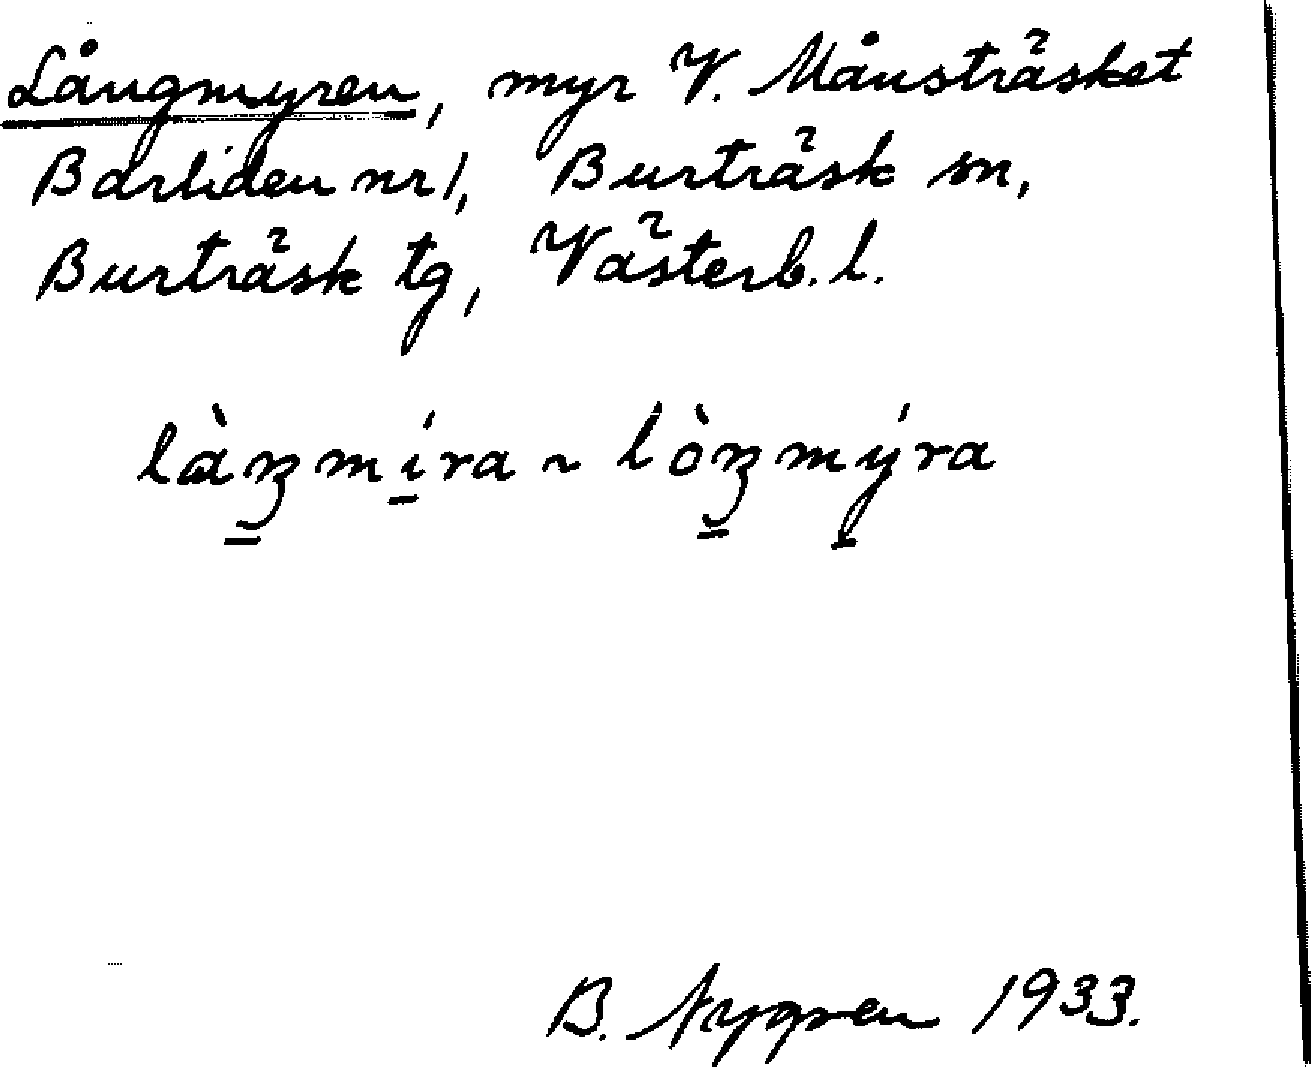 Långmyren, myr V. Månsträsket
Barliden nr 1, Burträsk sn,
Burträsk tg, Västerb. l.
làŋmíra ~ lòŋmýra
B. Nygren 1933.